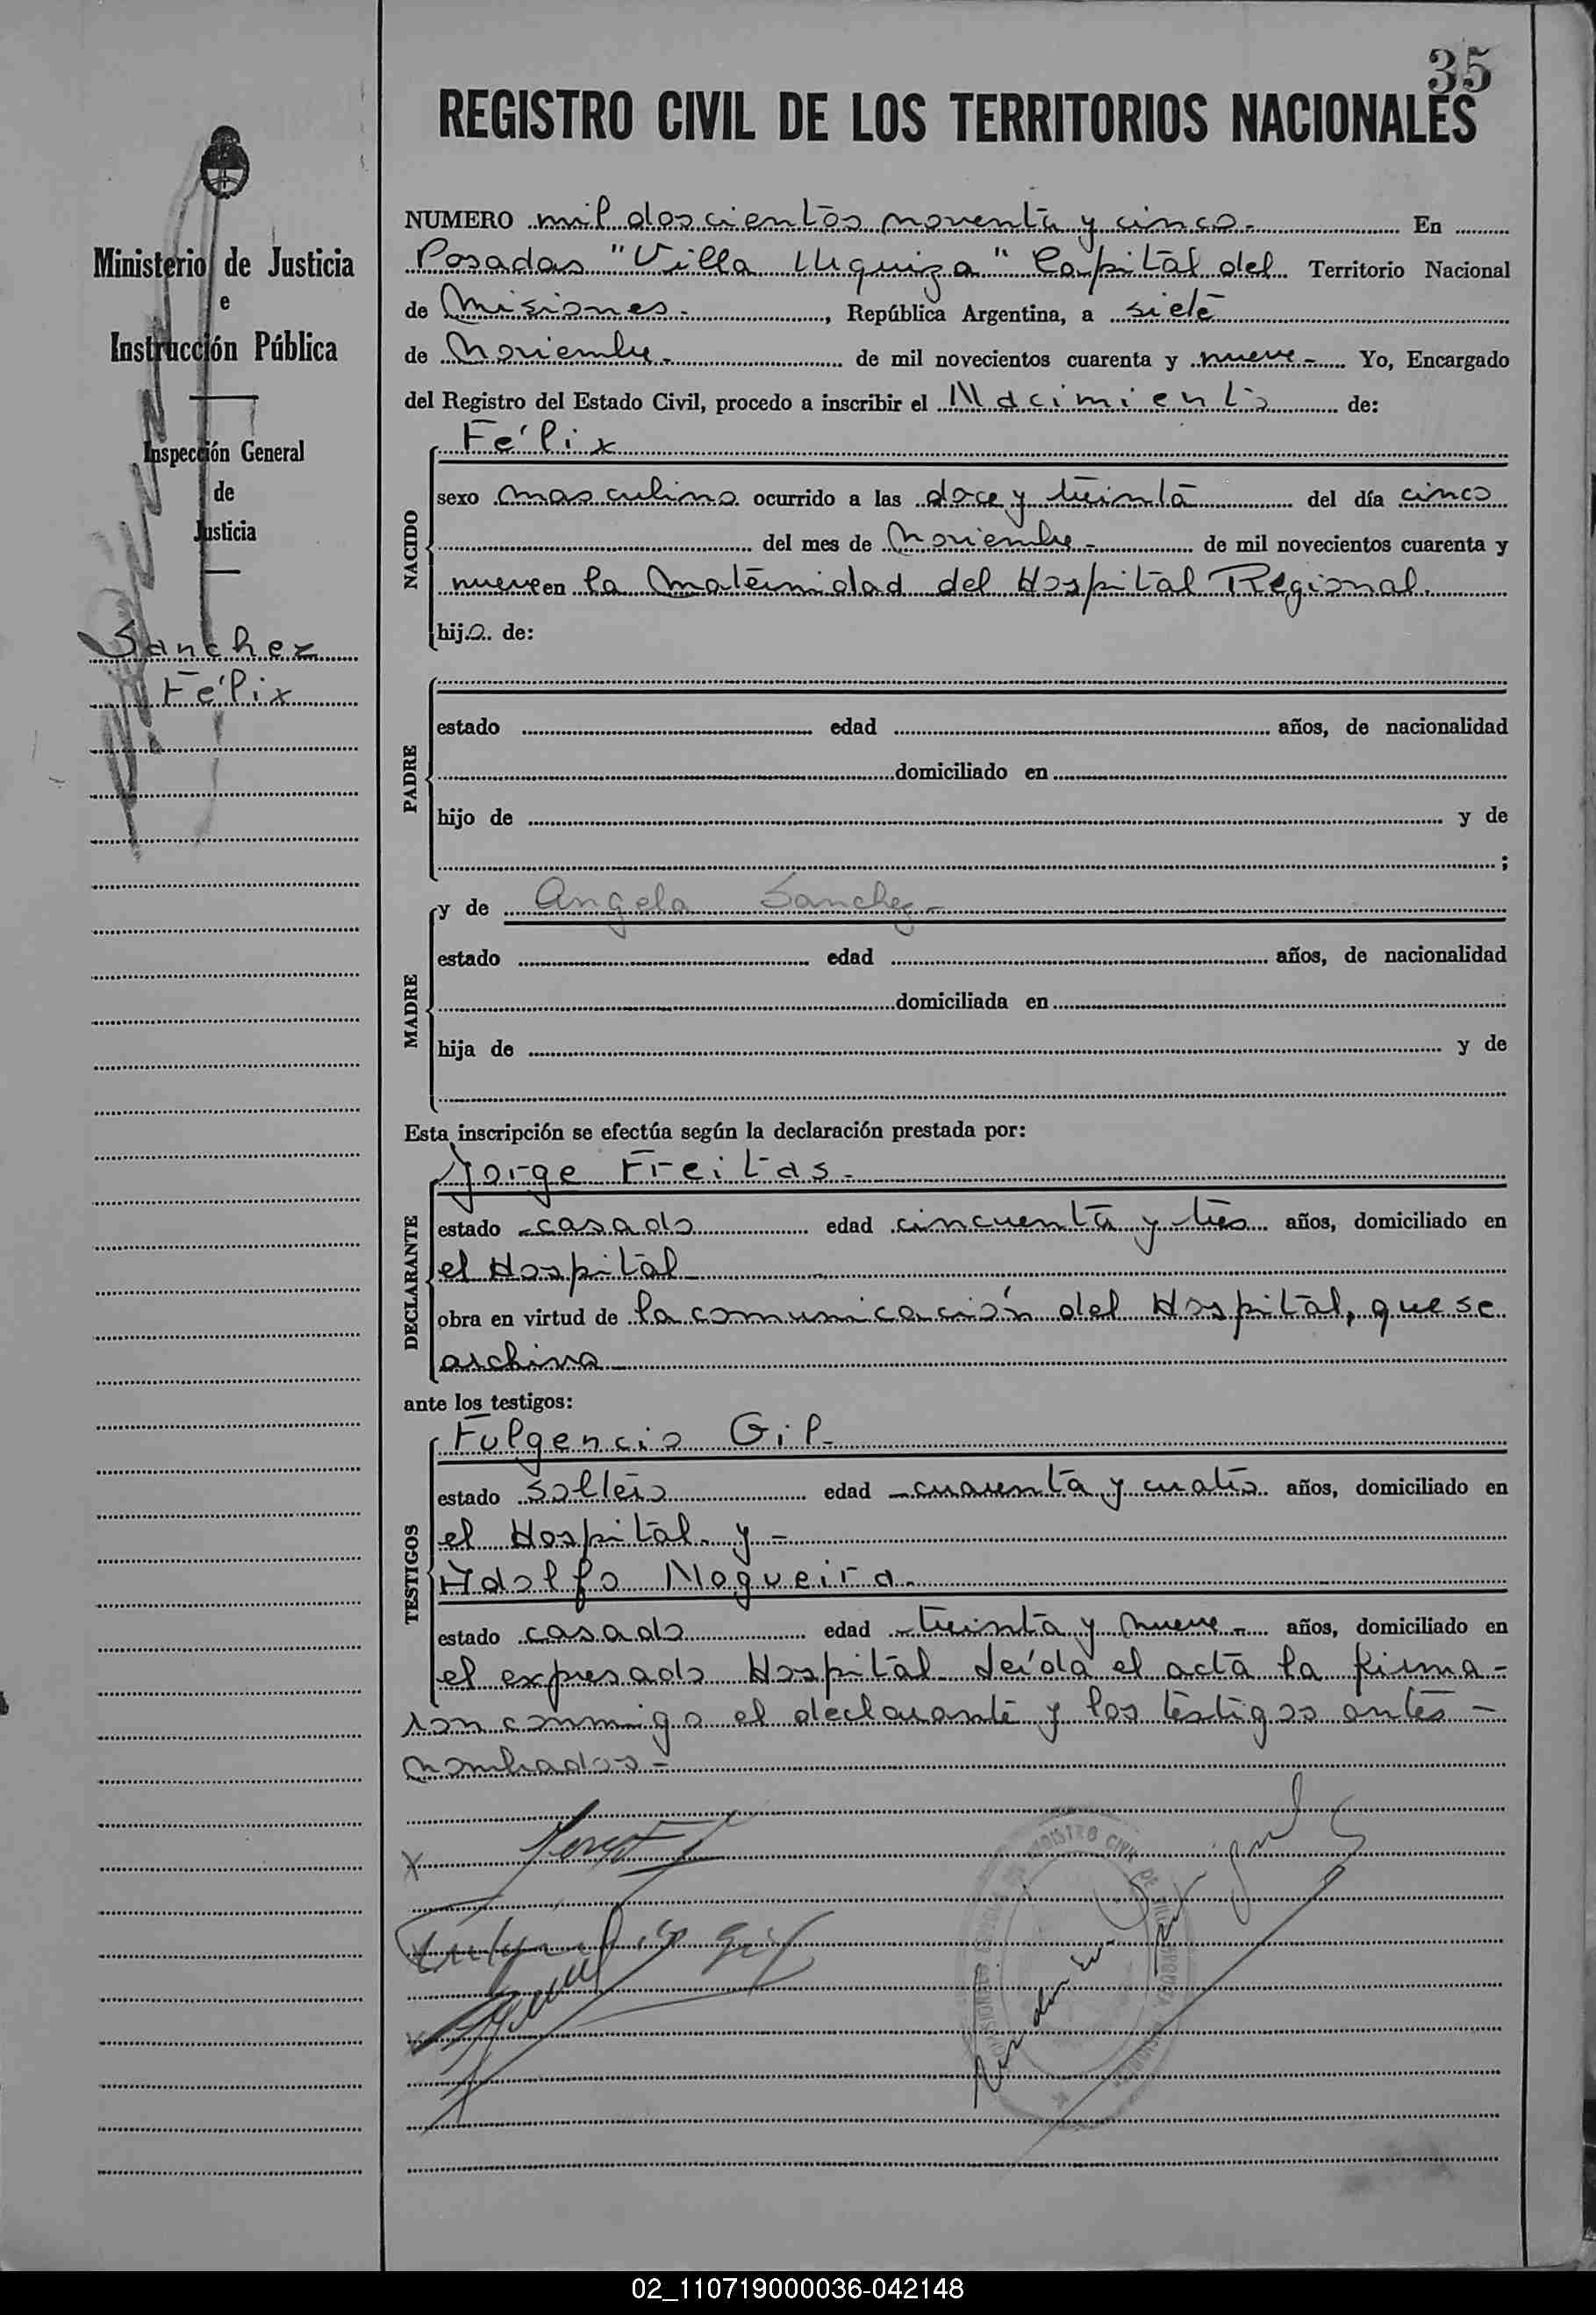 35
REGISTRO CIVIL DE LOS TERRITORIOS NACIONALES
Ministerio de Justicia
e
Instrucción Pública
Inspección General
de
Justicia
Sanchez
Félix
NUMERO mil doscientos noventa y cinco.- En
Posadas "Villa Urquiza" Capital del Territorio Nacional
de Misiones.- , República Argentina, a siete
de Noviembre.- de mil novecientos cuarenta y nueve.- Yo, Encargado
del Registro del Estado Civil, procedo a inscribir el Nacimiento de:
NACIDO
Félix
sexo masculino ocurrido a las doce y treinta del día cinco
del mes de Noviembre.- de mil novecientos cuarenta y
nueve en la Maternidad del Hospital Regional.
hijo. de:
PADRE
estado edad años, de nacionalidad
domiciliado en
hijo de y de
;
MADRE
y de Angela Sanchez.-
estado edad años, de nacionalidad
domiciliada en
hija de y de
Esta inscripción se efectúa según la declaración prestada por:
DECLARANTE
Jorge Freitas.-
estado casado edad cincuenta y tres años, domiciliado en
el Hospital
obra en virtud de la comunicación del Hospital, que se
archiva
ante los testigos:
TESTIGOS
Fulgencio Gil-
estado soltero edad cuarenta y cuatro años, domiciliado en
el Hospital. y =
Adolfo Nogueira.
estado casado edad treinta y nueve.- años, domiciliado en
el expresado Hospital Leída el acta la firma=
ron conmigo el declarante y los testigos antes =
nombrados =
x
Fulgencio Gil
x
REGISTRO CIVIL DE VILLA URQUIZA
02_110719000036-042148